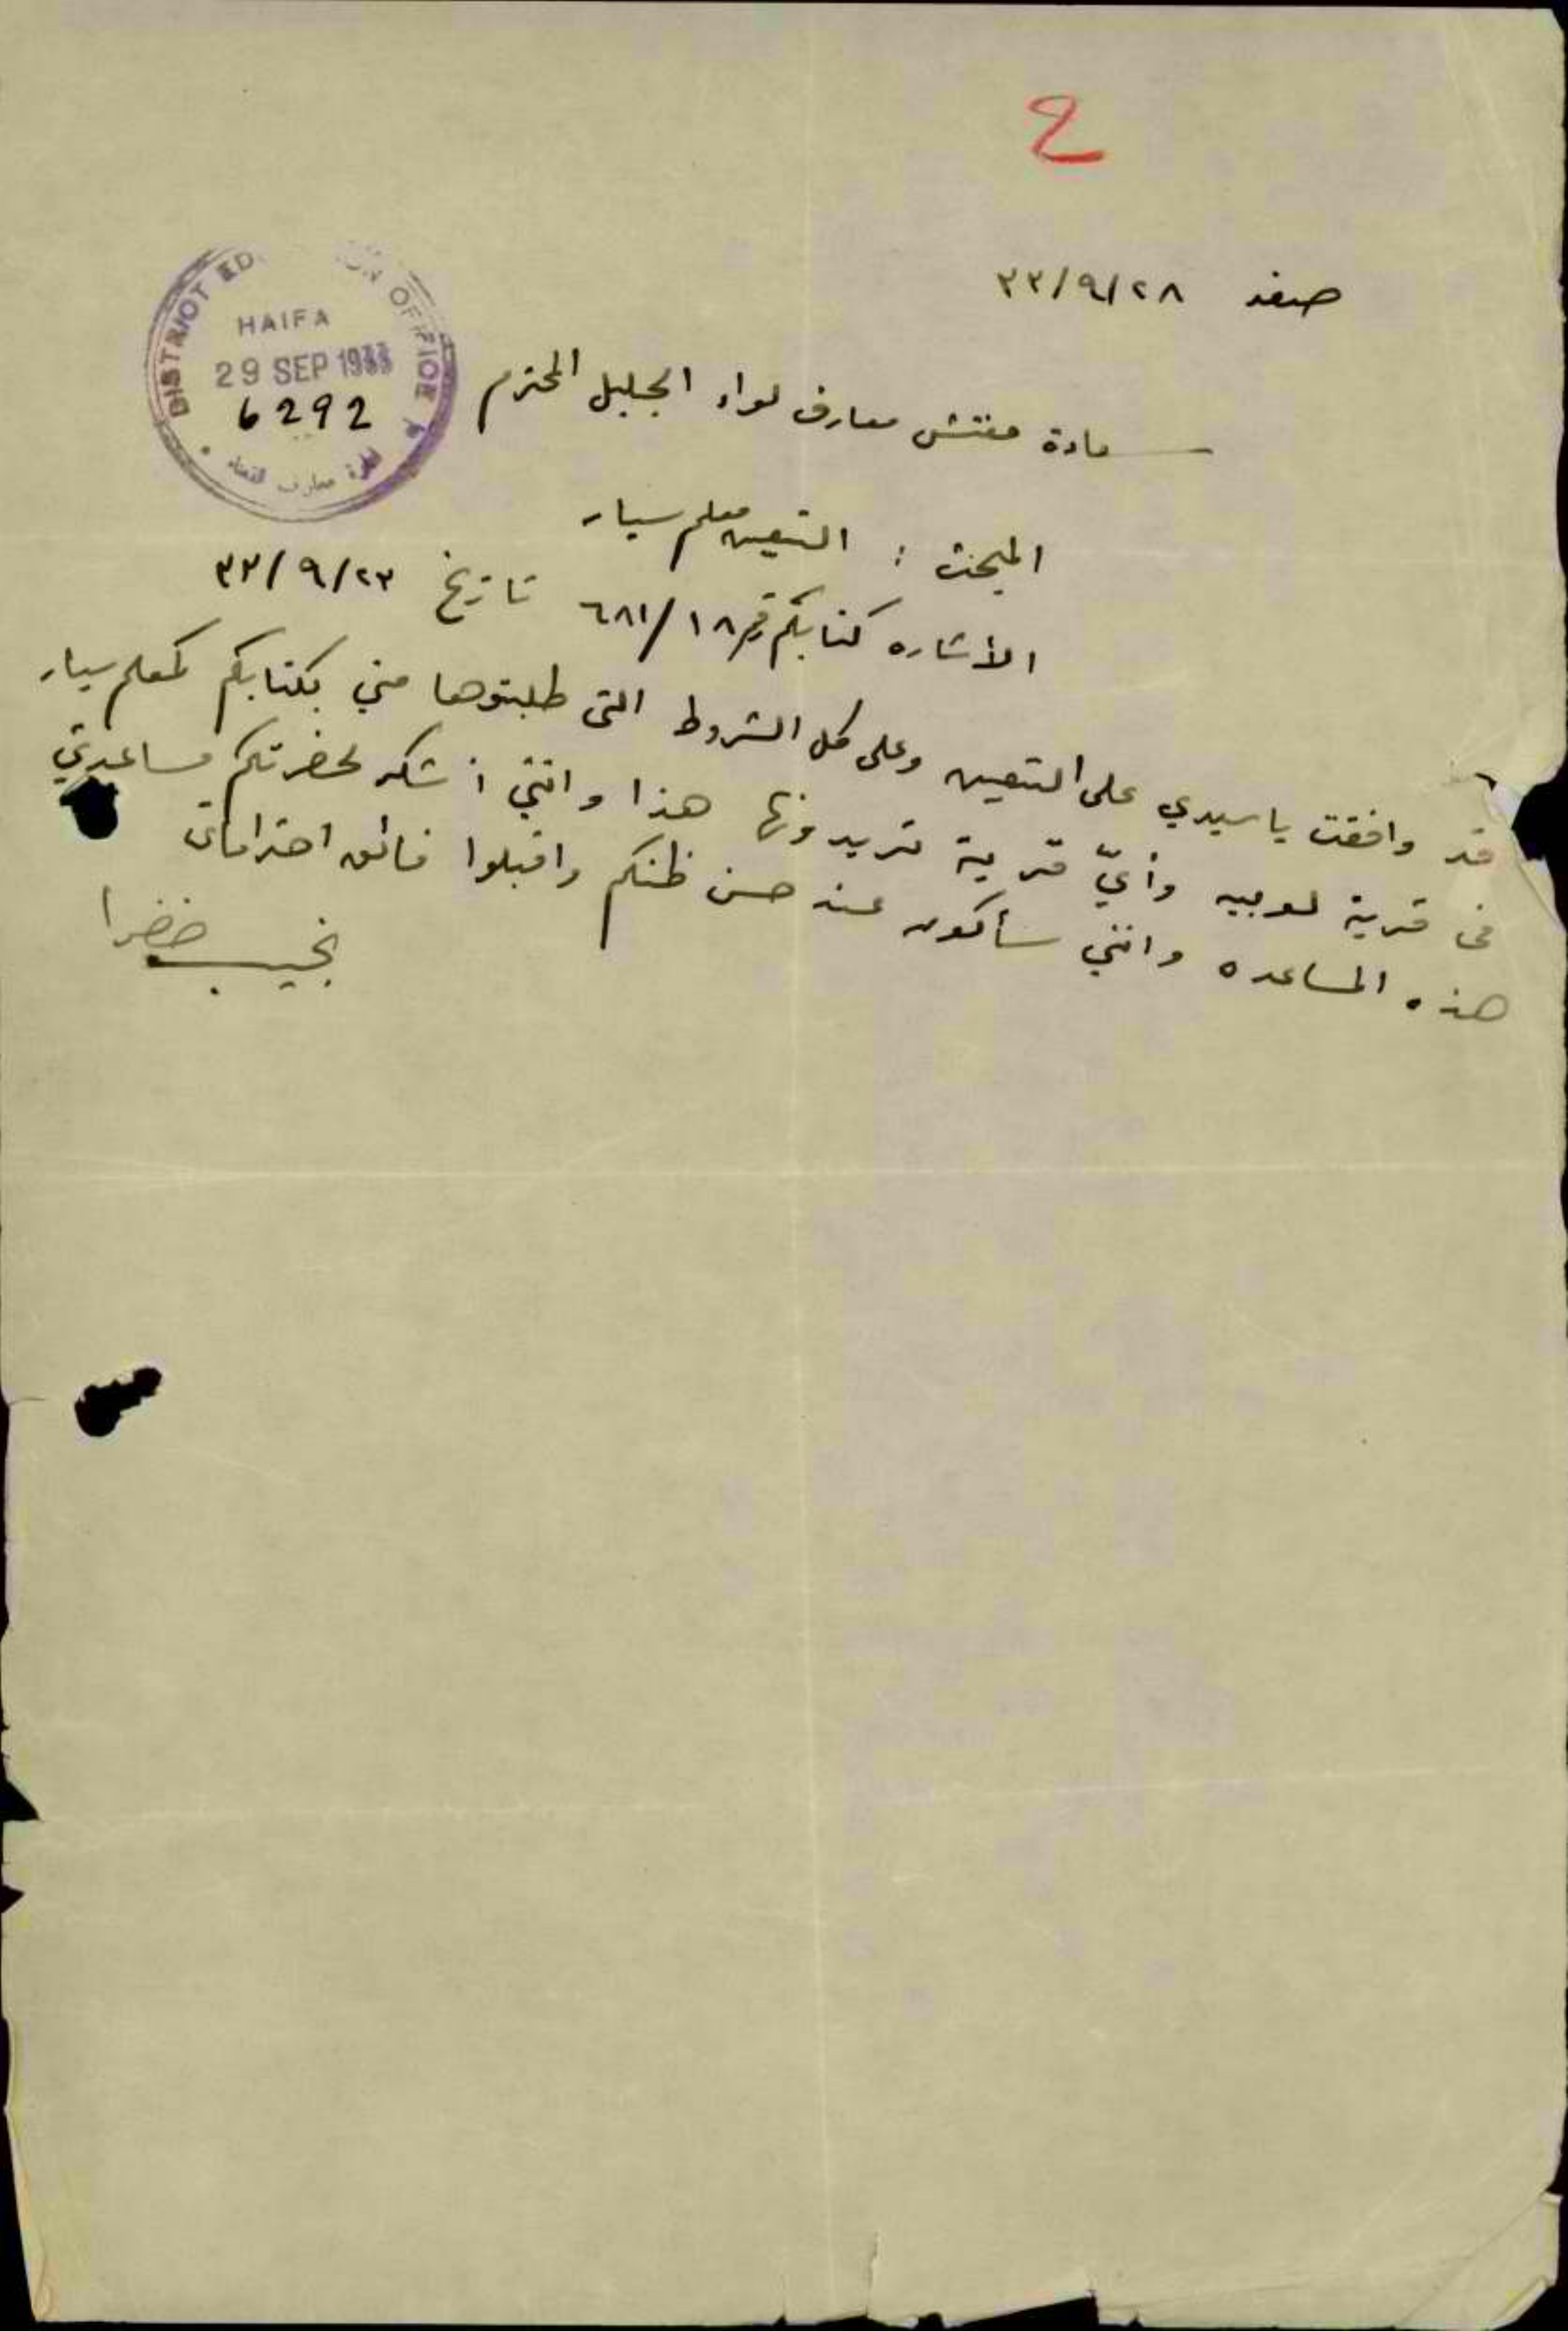 ٤
صفد ٢٨/٩/٣٣
DISTRICT ED ION OFFICE
HAIFA
29 SEP 1933
6292
معارف
سعادة مفتش معارف لواء الجليل المحترم
المبحث : التعيين معلم سيار
الأشاره كتابكم رقم ٦٨١/١٨ تاريخ ٢٣/٩/٣٣
قد وافقت يا سيدي على التعيين وعلى كل الشروط التي طلبتوها مني بكتابكم كمعلم سيار
في قرية لوبيه وأيّ قرية تريدونها هذا وانني اشكر لحضرتكم مساعدتي
هذه المساعده وانني سأكون عند حسن ظنكم واقبلوا فائق احتراماتي
نجيب خضرا